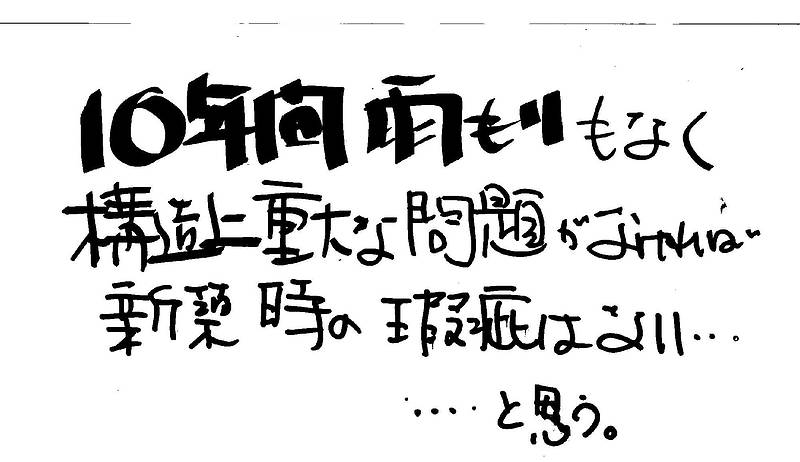 10年間雨もりもなく
構造上重大な問題がなければ
新築時の瑕疵はない…
‥‥と思う。